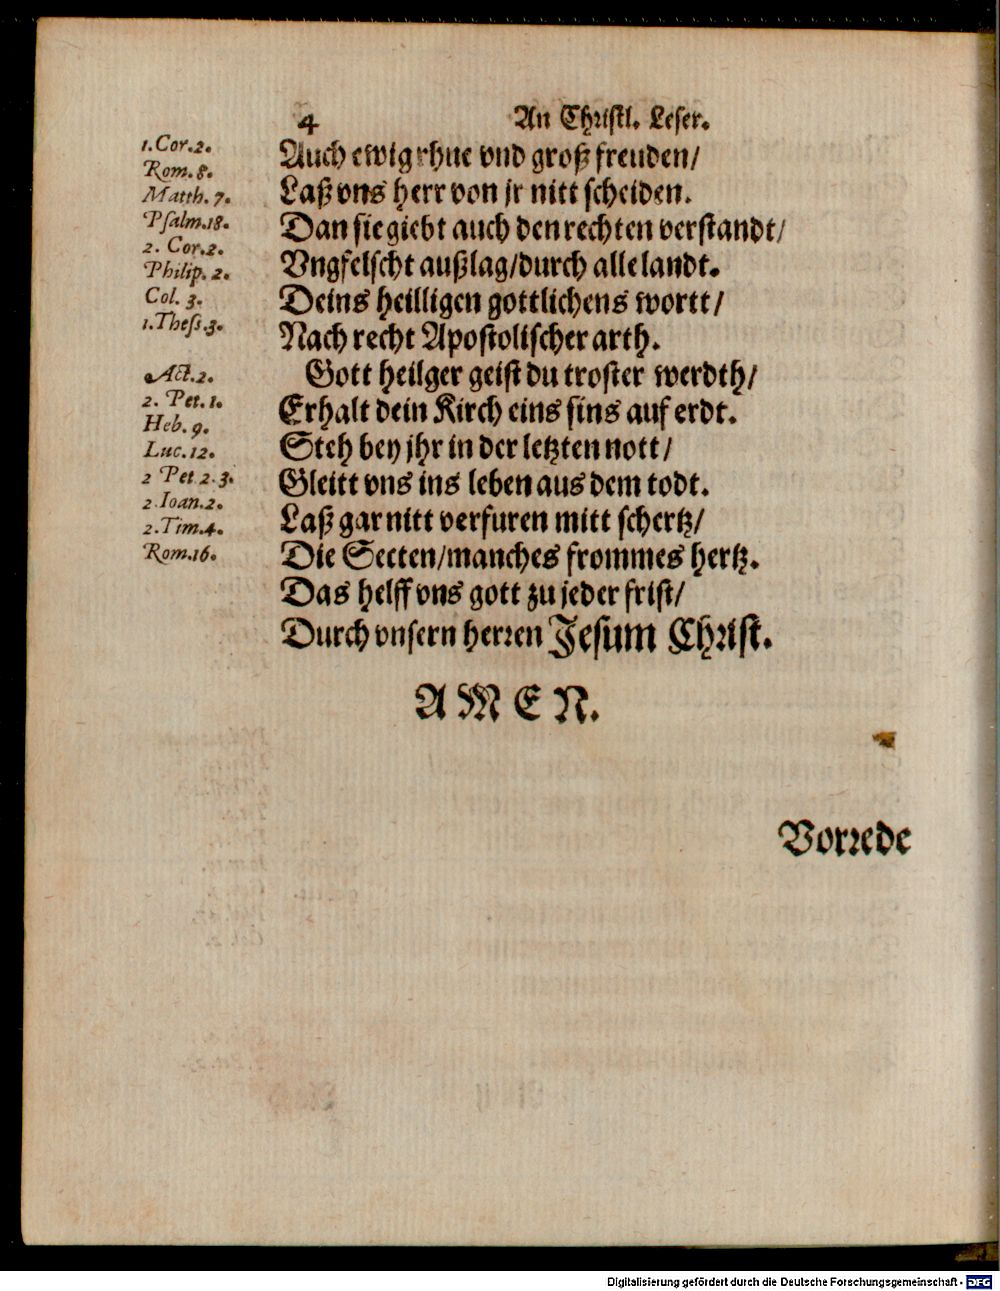 4 An Christl. Leser.
1. Cor. 2.
Rom. 8.
Matth. 7.
Psalm. 18.
2. Cor. 2.
Philip. 2.
Col. 3.
1. Thess. 3.
Act. 2.
2. Pet. 1.
Heb. 9.
Luc. 12.
2 Pet 2. 3.
2 Ioan. 2.
2. Tim. 4.
Rom. 16.
Auch ewig rhue vnd groß freuden/
Laß vns herr von jr nitt scheiden.
Dan sie giebt auch den rechten verstandt/
Vngfelscht außlag/durch alle landt.
Deins heilligen gottlichens wortt/
Nach recht Apostolischer arth.
Gott heilger geist du troster werdth/
Erhalt dein Kirch eins sins auf erdt.
Steh bey jhr in der letzten nott/
Gleitt vns ins leben aus dem todt.
Laß gar nitt verfuren mitt schertz/
Die Secten/manches frommes hertz.
Das helff vns gott zu jeder frist/
Durch vnsern herren Jesum Christ.
AMEN.
Vorrede
Digitalisierung gefördert durch die Deutsche Forschungsgemeinschaft - DFG